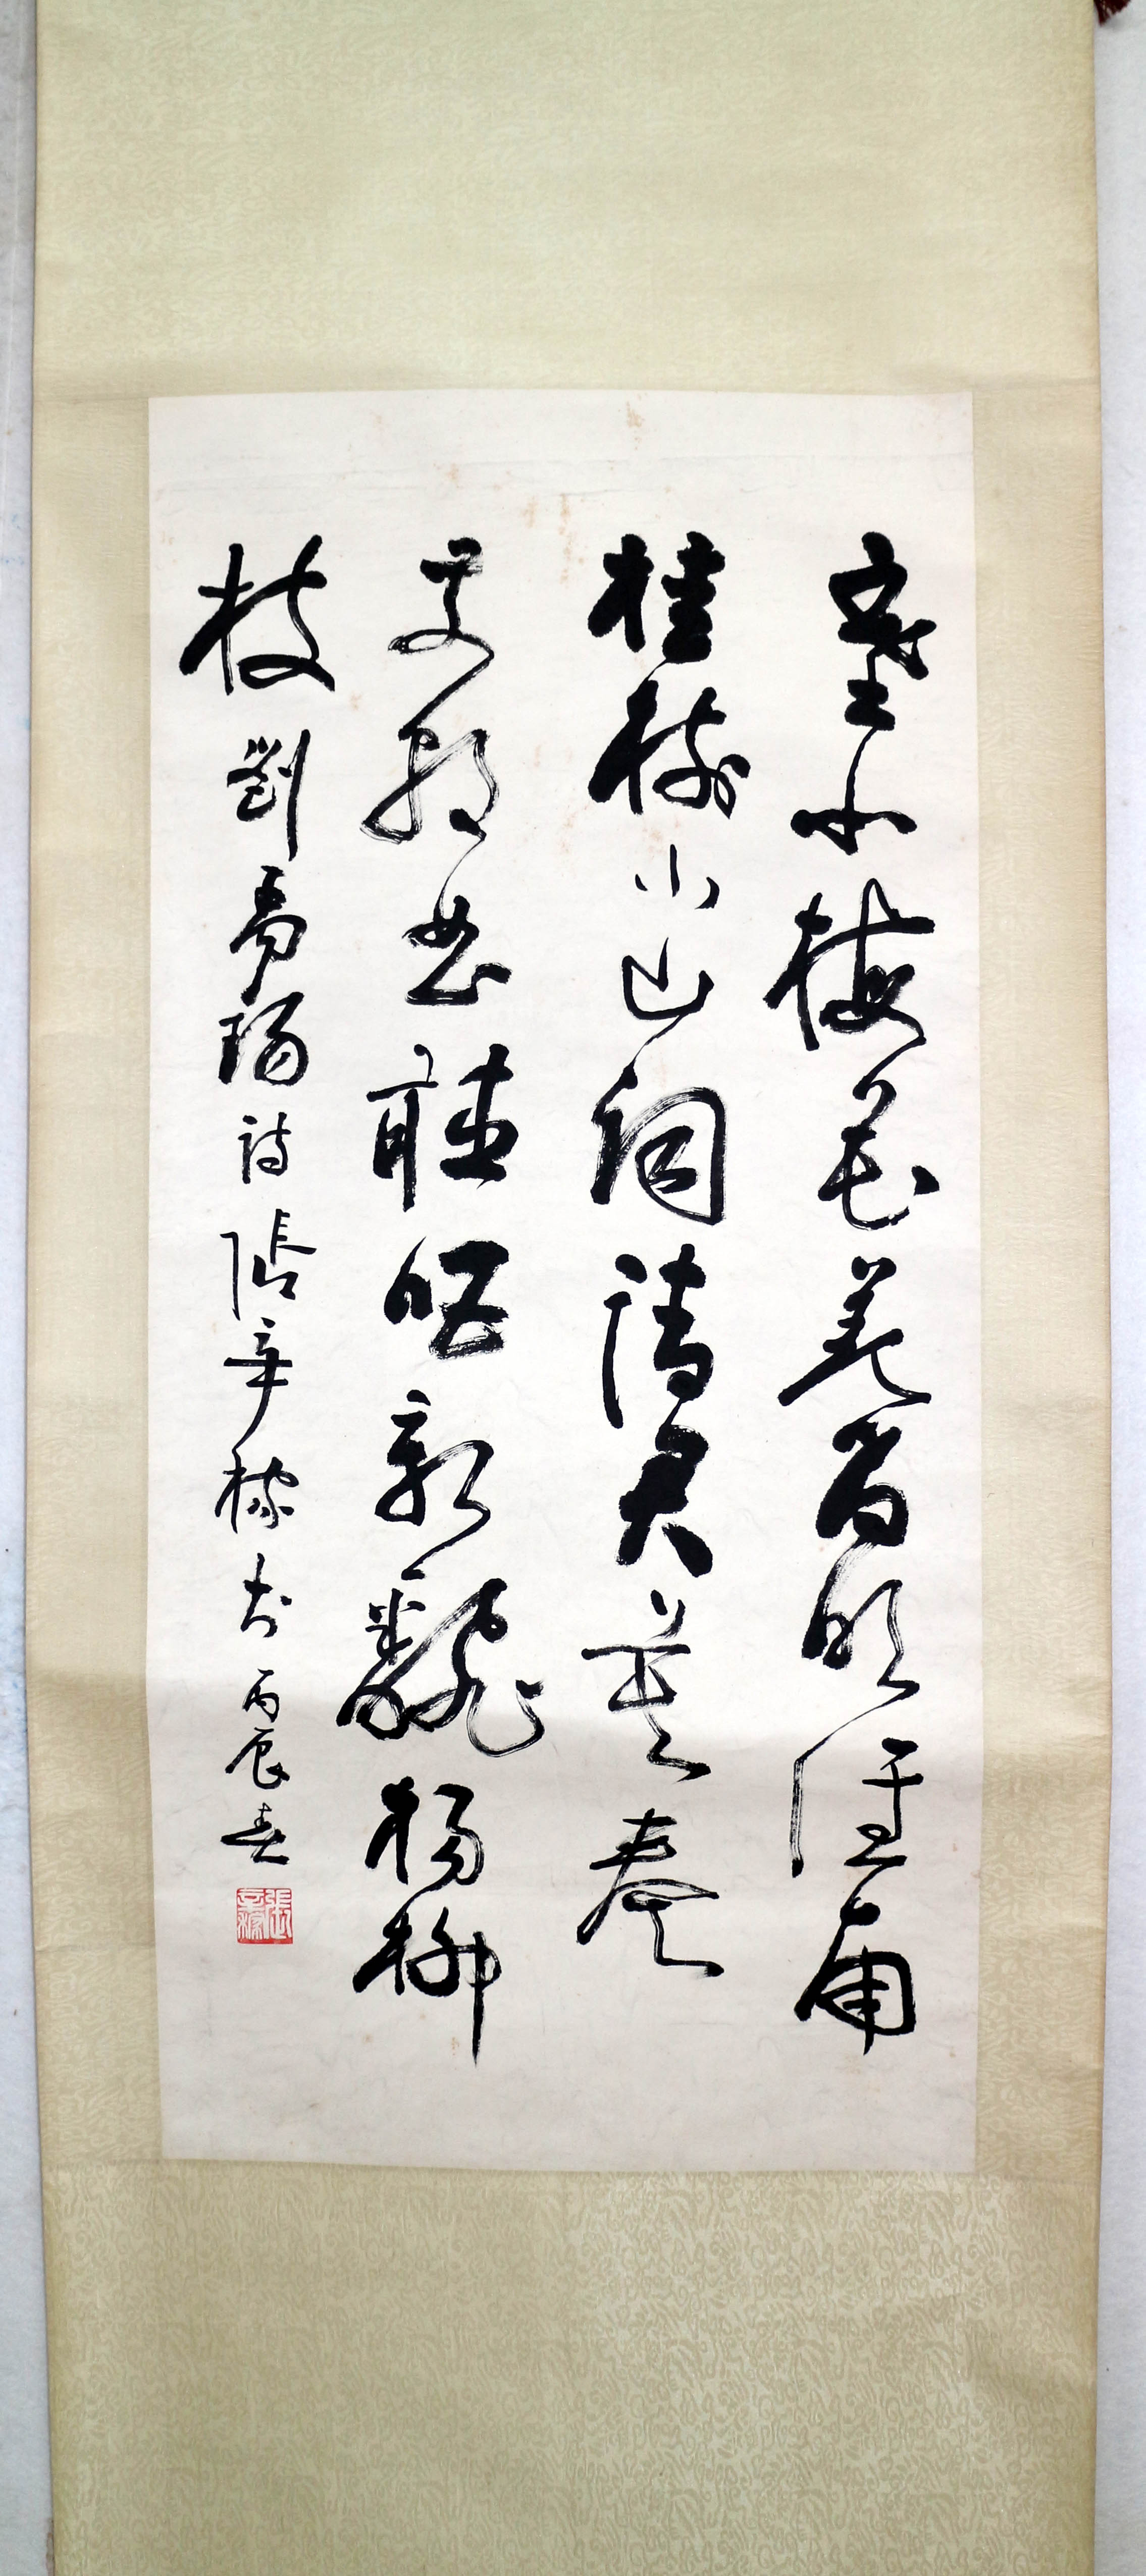 塞北梅花羌笛吹淮南
桂樹小山詞請君莫奏
前朝曲聽唱新翻楊柳
枝劉禹錫詩張辛稼書丙辰春
張辛稼